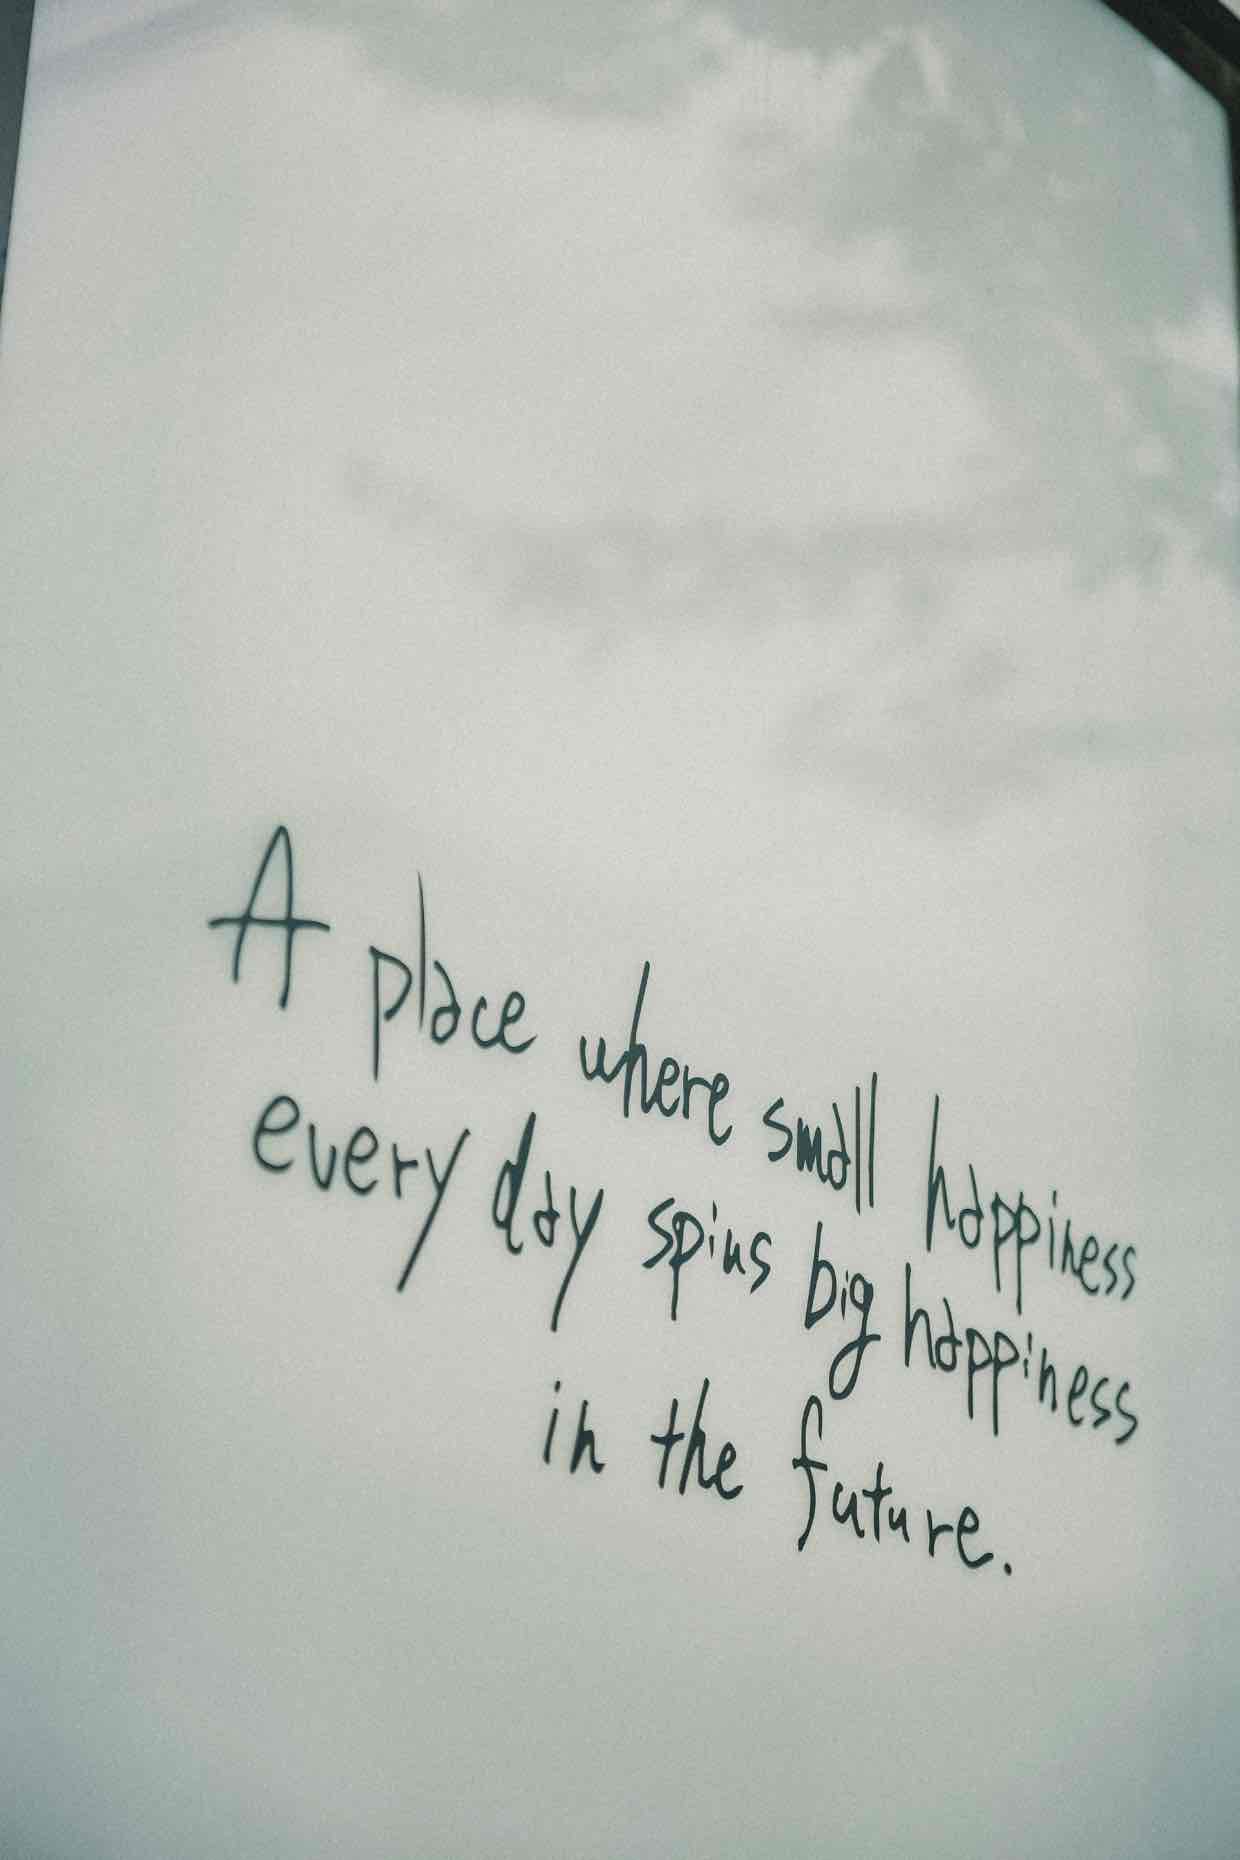 A place where small happiness
every day spins big happiness
in the future.